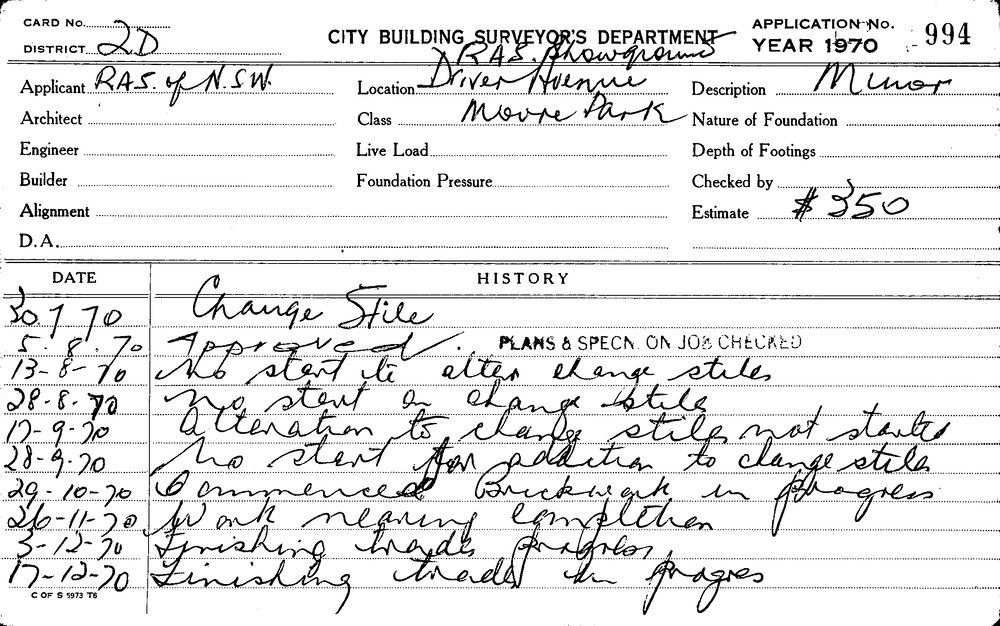 CARD No.
DISTRICT 2D
CITY BUILDING SURVEYOR'S DEPARTMENT
APPLICATION No. 994
YEAR 1970
Applicant R.A.S. of N.S.W.
Location R.A.S. Showground
Driver Avenue
Description Minor
Architect
Class Moore Park
Nature of Foundation
Engineer
Live Load
Depth of Footings
Builder
Foundation Pressure
Checked by
Alignment
Estimate $350
D.A.
DATE HISTORY
30.7.70 Change Stile
5.8.70 Approved. PLANS & SPECN. ON JOB CHECKED
13-8-70 No start to alter change stiles
28-8-70 No start on change stile
17-9-70 Alteration to change stiles not started
28-9-70 No start for addition to change stile
29-10-70 Commenced Brickwork in progress
26-11-70 Work nearing completion
3-12-70 Finishing trades progress
17-12-70 Finishing trades in progres
C OF S 5973 T6